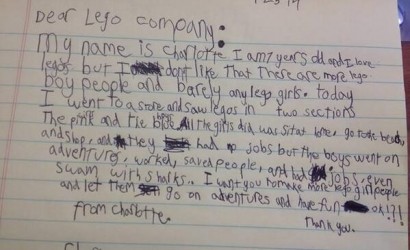 Dear Lego company:
My name is Charlotte I am 7 years old and I love
legos but I don't like that There are more lego
boy people and barely any lego girls. today
I went to a store and saw legos in two sections
The pink and the blue. All the girls did was sit at home, go to the beach,
and shop, and they had no jobs but the boys went on
adventures, worked, saved people, and had jobs, even
swam with sharks. I want you to make more lego girl people
and let them go on adventures and have fun ok!?!
Thank you.
from Charlotte.